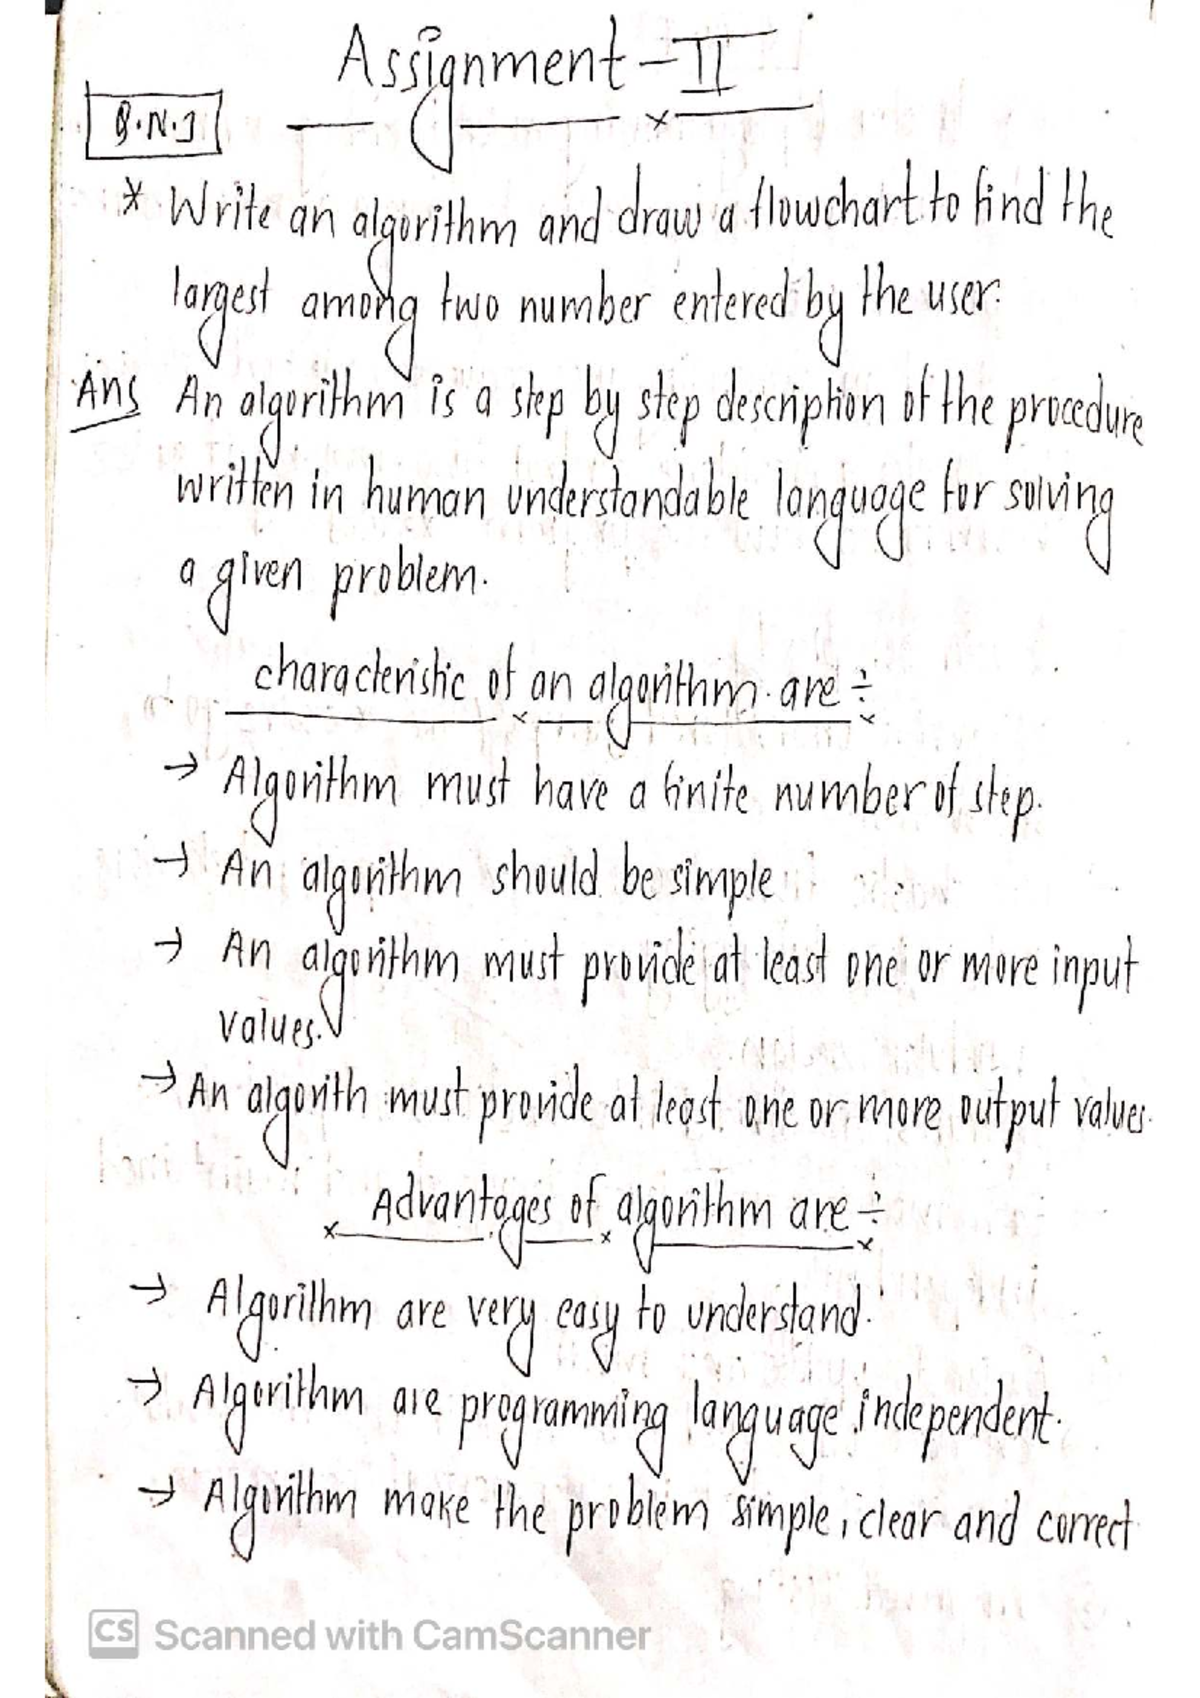 Assignment - II
Q.N.1
* Write an algorithm and draw a flowchart to find the
largest among two number entered by the user.
Ans An algorithm is a step by step description of the procedure
written in human understandable language for solving
a given problem.
characteristic of an algorithm are ÷
→ Algorithm must have a finite number of step.
→ An algorithm should be simple
→ An algorithm must provide at least one or more input
values.
→ An algorith must provide at least one or more output values.
Advantages of algorithm are ÷
→ Algorithm are very easy to understand.
→ Algorithm are programming language independent.
→ Algorithm make the problem simple, clear and correct
CS Scanned with CamScanner